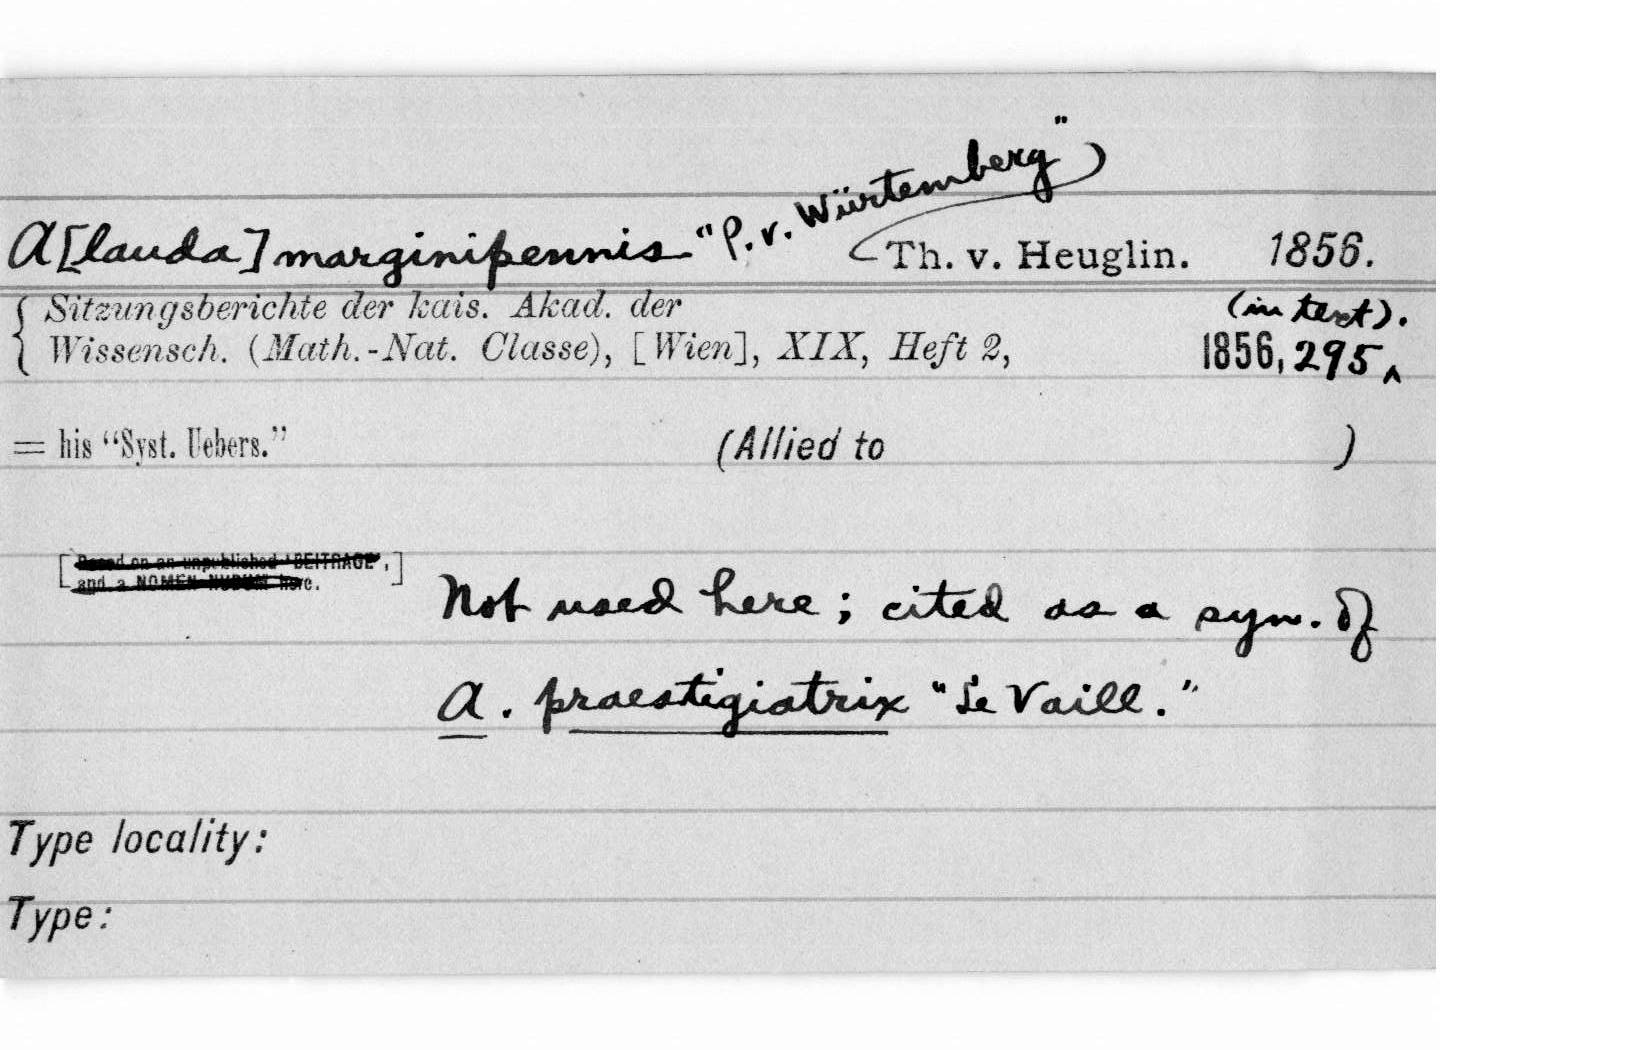 A[lauda] marginipennis "P. v. Würtemberg")
(Th. v. Heuglin. 1856.
Sitzungsberichte der kais. Akad. der
(in text).
Wissensch. (Math.-Nat. Classe), [Wien], XIX, Heft 2, 1856, 295 ^
= his "Syst. Uebers." (Allied to )
[Based on an unpublished 'BEITRAGE',
and a NOMEN NUDUM here.]
Not used here; cited as a syn. of
A. praestigiatrix "Le Vaill."
Type locality:
Type: